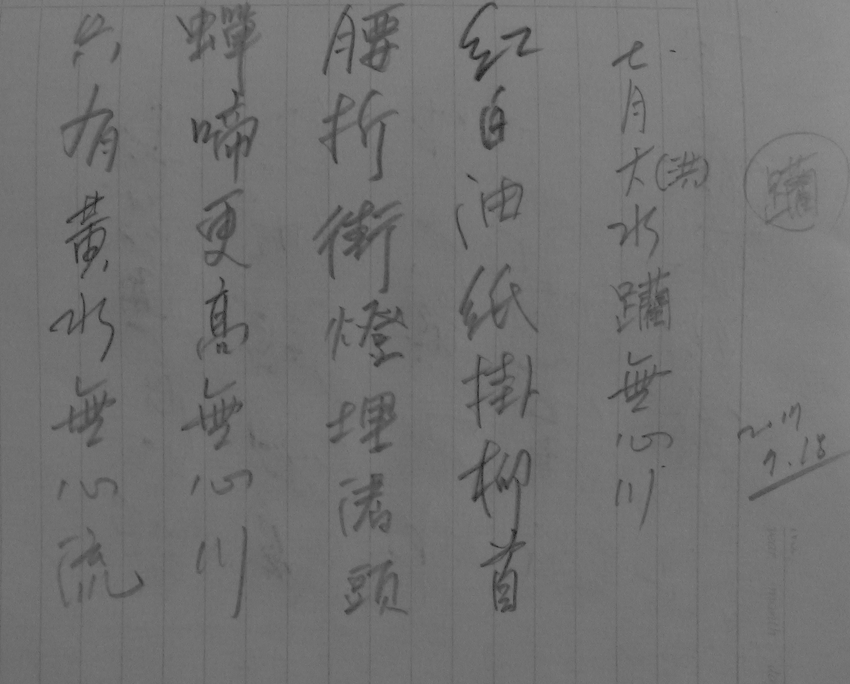 躪
2017
7.18
七月大(洪)水躪無心川
紅白油紙掛柳首
腰折街燈埋渚頭
蟬啼更高無心川
只有黃水無心流